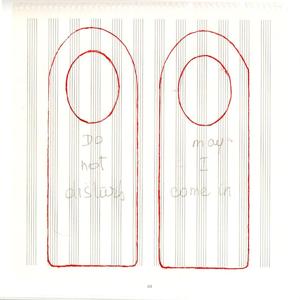 Do
not
disturb
may
I
come in